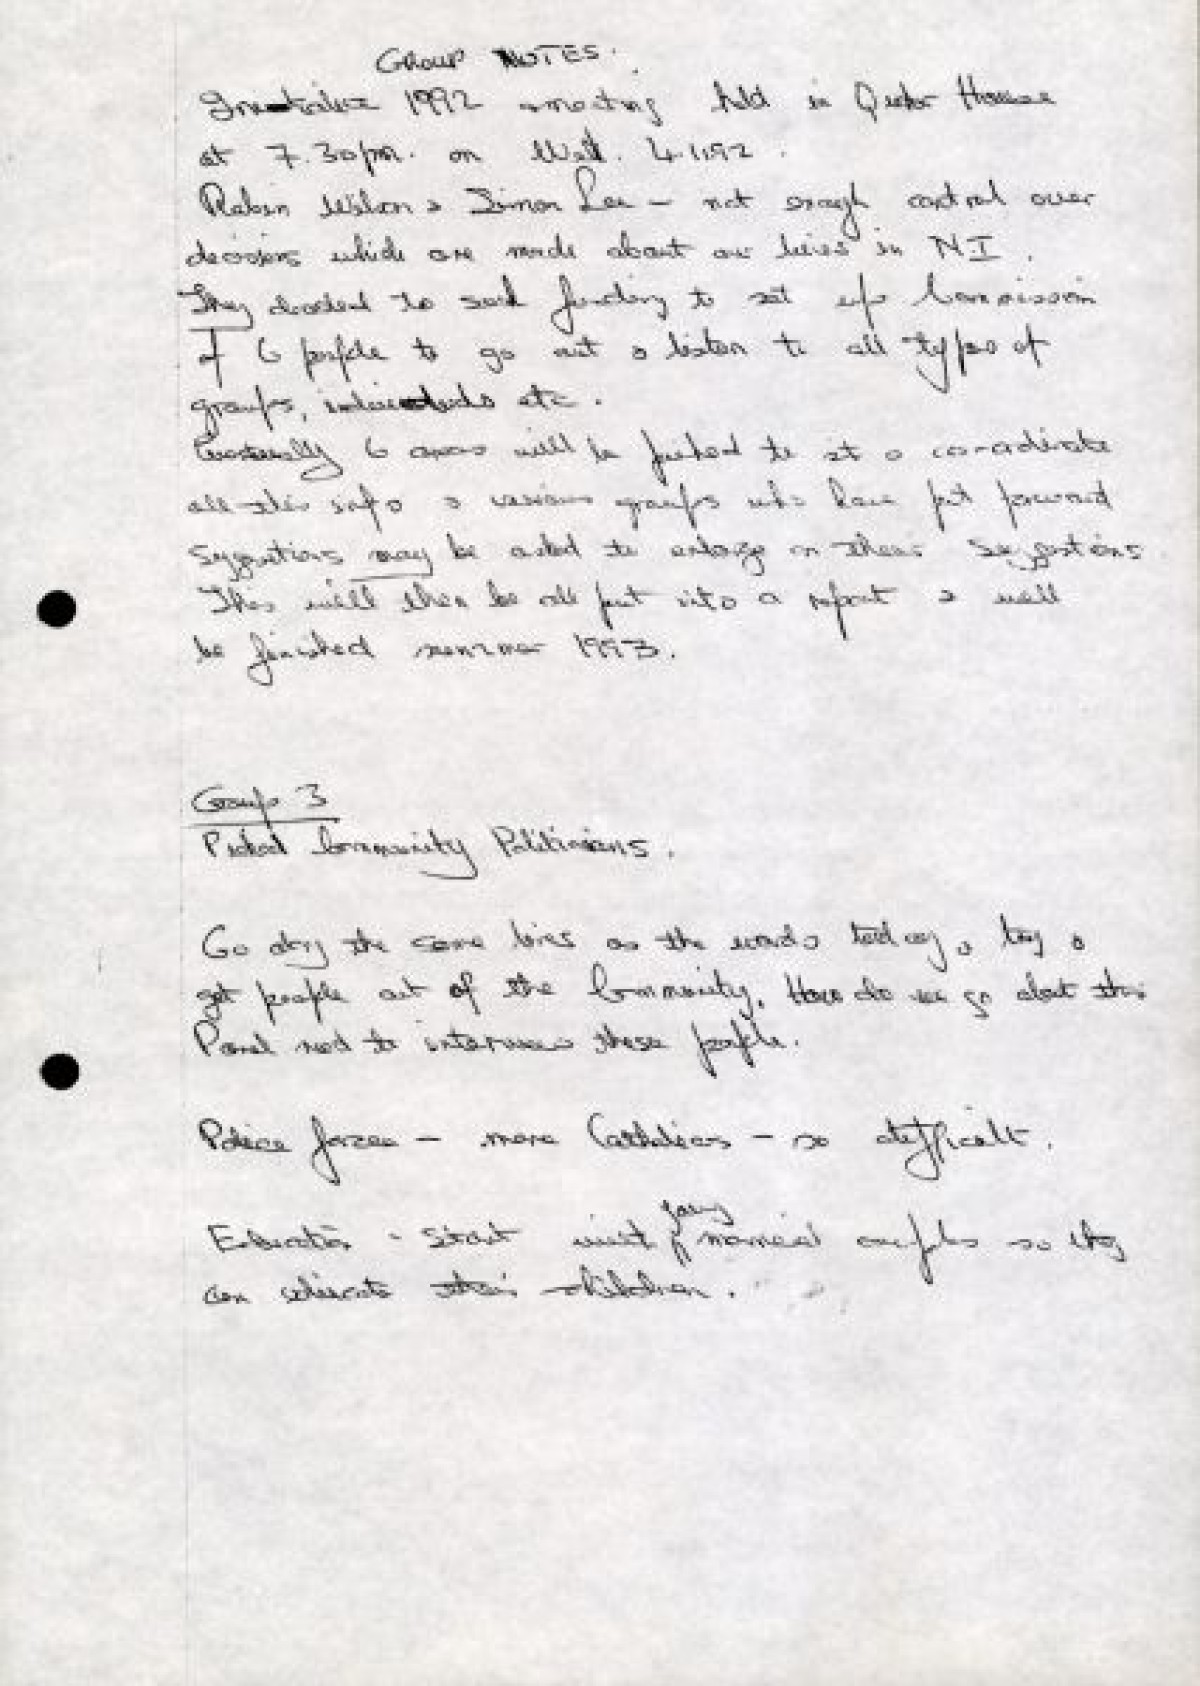 GROUP NOTES.
Initiative 1992 meeting held in Quaker House
at 7.30pm. on Wed. 4.11.92.
Robin Wilson & Simon Lee – not enough control over
decisions which are made about our lives in N I.
They decided to seek funding to set up Commission
of 6 people to go out & listen to all types of
groups, individuals etc.
Eventually 6 areas will be picked to sit & co-ordinate
all this info & various groups who have put forward
suggestions may be asked to enlarge on their suggestions
This will then be all put into a report & will
be finished summer 1993.
Group 3
Picked Community Politicians.
Go along the same lines as the words today, &
get people out of the Community. How do we go about this
Panel need to interview these people.
Police force – more Catholics – so difficult.
Education - Start with young married couples so they
can educate their children.